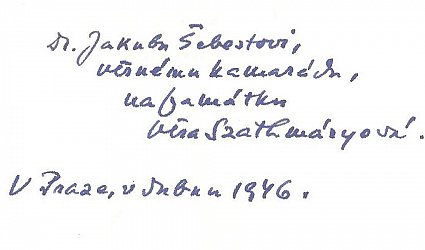 Dr. Jakubu Šebestovi,
věrnému kamarádu,
na památku
Věra Szathmáryová.
V Praze, v dubnu 1946.